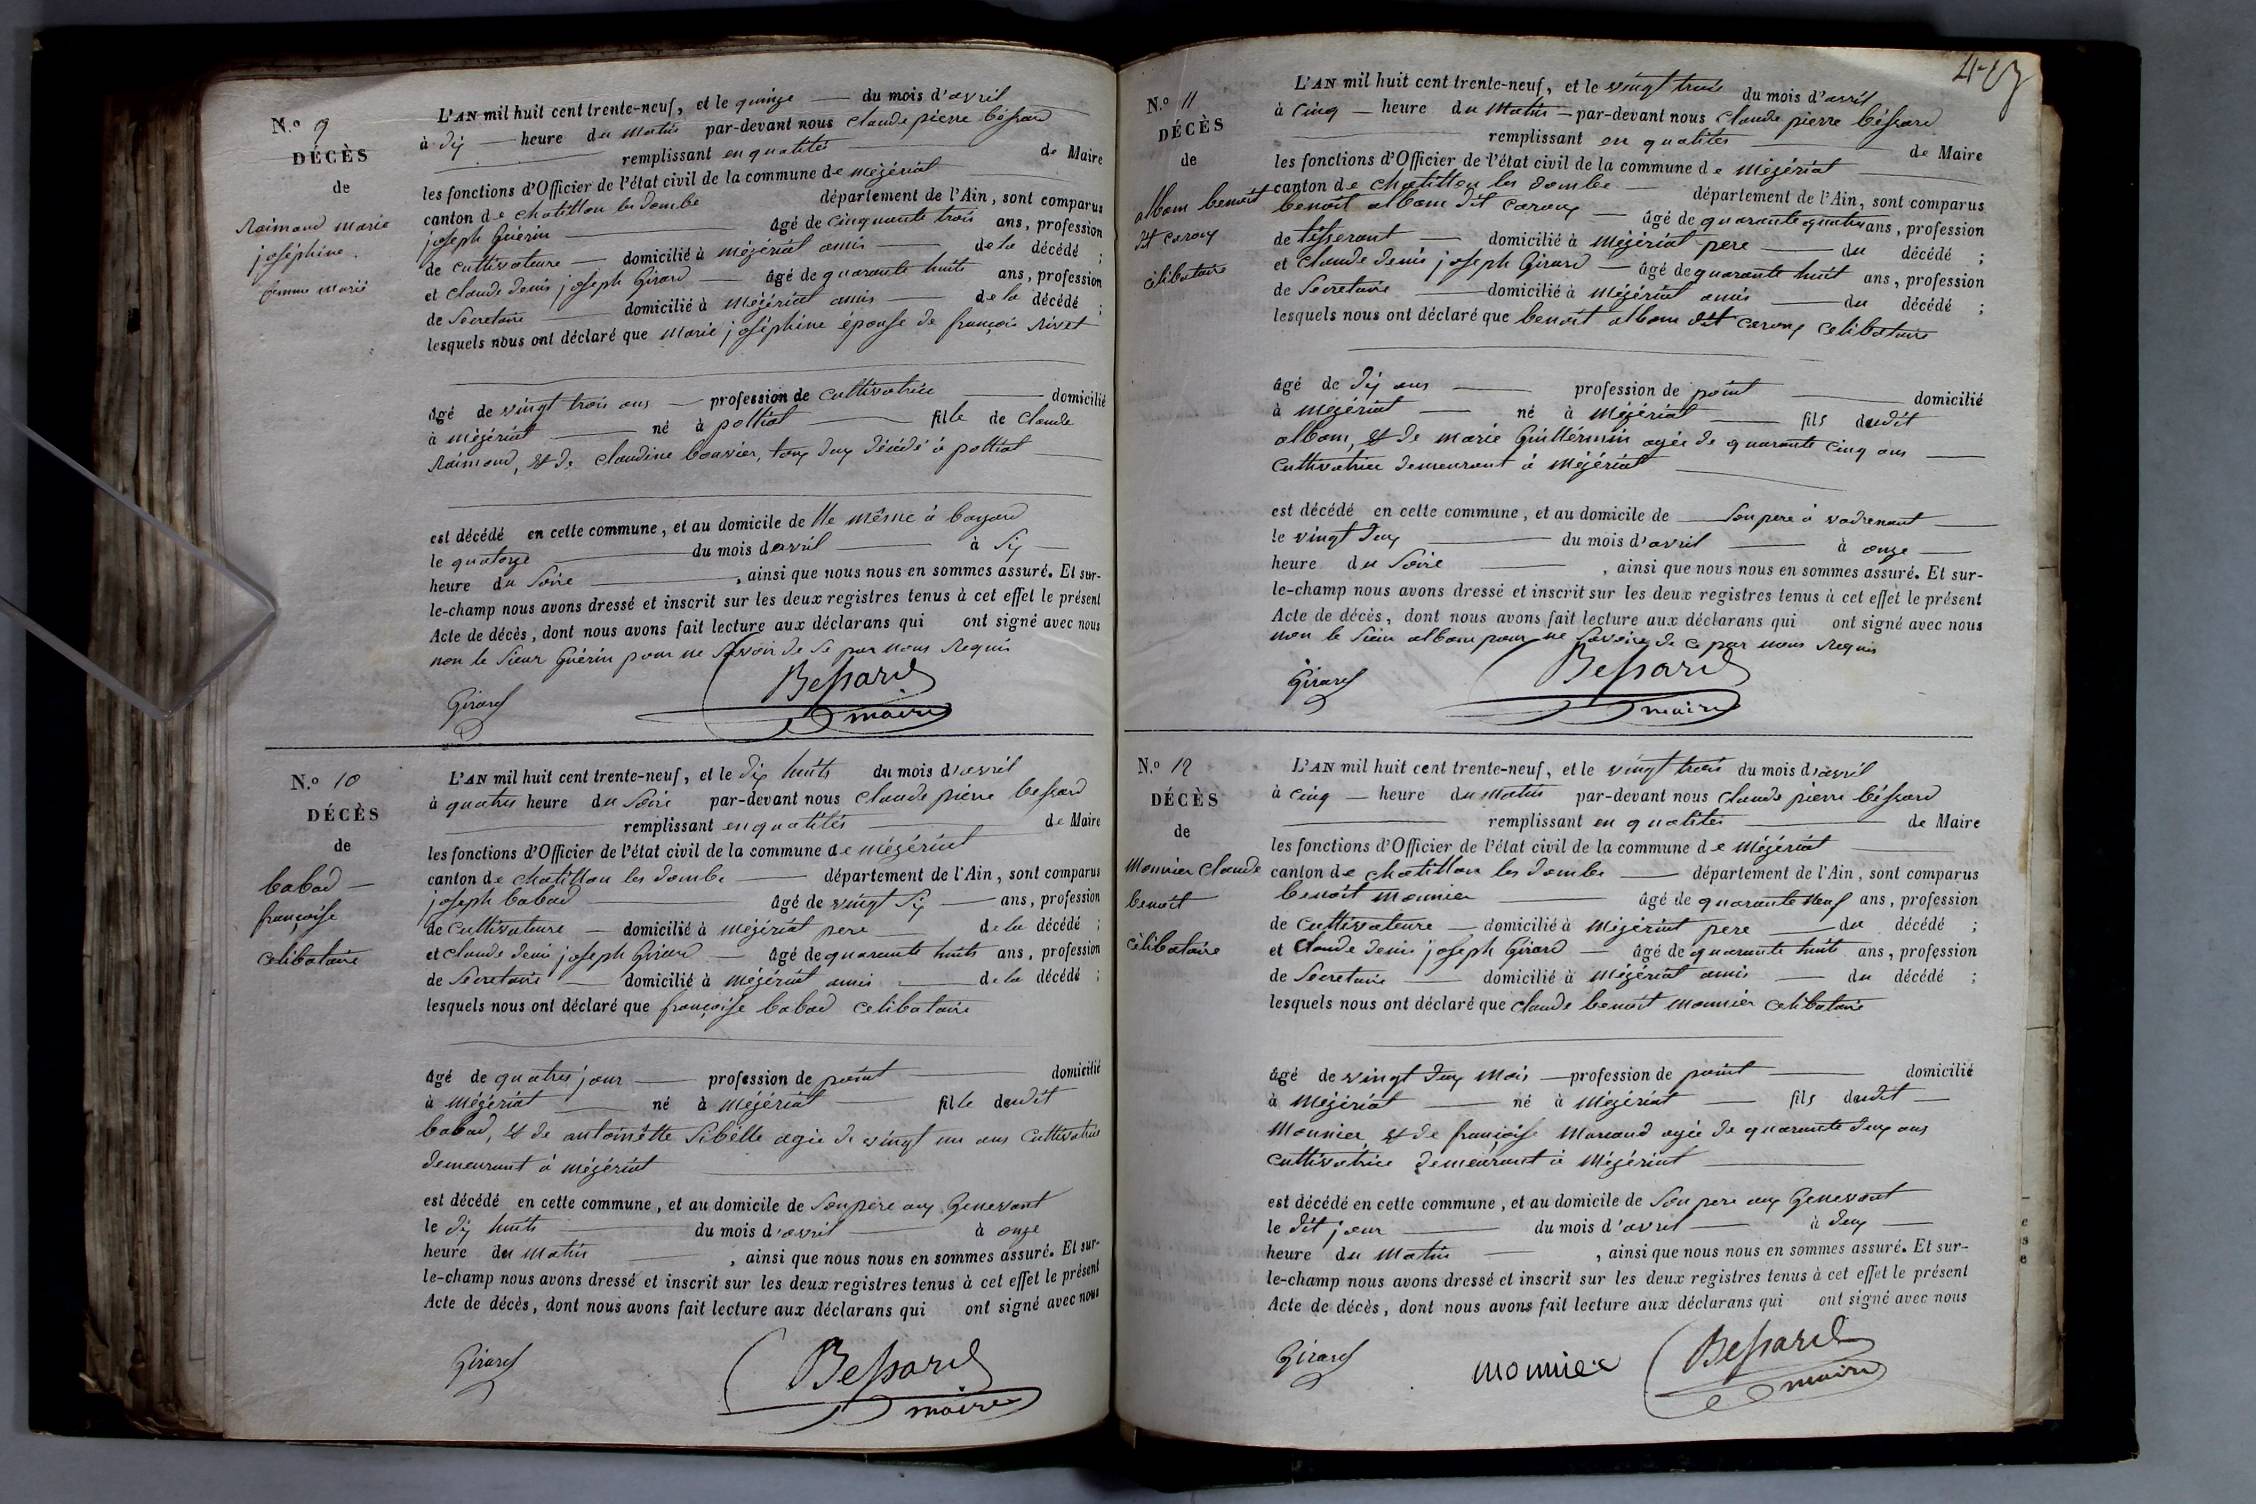 N.º 9
DÉCÈS
de
Raimand marie
joséphine.
femme marié
L'AN mil huit cent trente-neuf, et le quinze du mois d'avril
à dix heure du matin par-devant nous claude pierre béssard
remplissant en qualités de Maire
les fonctions d'Officier de l'état civil de la commune de mézériat
canton de chatillon les dombe département de l'Ain, sont comparus
joseph Guérin âgé de cinquante trois ans, profession
de cultivateure domicilié à mézériat amis de la décédé ;
et claude denis joseph Girard âgé de quarante huits ans, profession
de Secretaire domicilié à mézériat amis de la décédé ;
lesquels nous ont déclaré que marie joséphine épouse de françois Rivet
âgé de vingt trois ans profession de cultivatrice domicilié
à mézériat né à polliat fille de Claude
Raimond, et de claudine bouvier, toux deux décédé à polliat
est décédé en cette commune, et au domicile de lle même à bayard
le quatorze du mois davril à Six
heure du Soire , ainsi que nous nous en sommes assuré. Et sur-
le-champ nous avons dressé et inscrit sur les deux registres tenus à cet effet le présent
Acte de décès, dont nous avons fait lecture aux déclarans qui ont signé avec nous
non le Sieur Guérin pour ne Savoir de Se par nous Requis
Girard Bessard
maire
N.º 10
DÉCÈS
de
babad
françoise
celibataire
L'AN mil huit cent trente-neuf, et le dix huits du mois d'avril
à quatres heure du Soire par-devant nous claude pierre bessard
remplissant en qualités de Maire
les fonctions d'Officier de l'état civil de la commune de mézériat
canton de chatillon les dombe département de l'Ain, sont comparus
joseph babad âgé de vingt Six ans, profession
de cultivateure domicilié à mézériat pere de la décédé ;
et claude denis joseph Girard âgé de quarante huits ans, profession
de Secretaire domicilié à mézériat amis de la décédé ;
lesquels nous ont déclaré que françoise babad celibataire
âgé de quatres jour profession de point domicilié
à mézériat né à mézériat fille dudit
babad, et de antoinette Sibélle agée de vingt un ans cultivatrice
demeurant à mézériat
est décédé en cette commune, et au domicile de Son père aux Genevant
le dix huits du mois d'avril à onze
heure du matin , ainsi que nous nous en sommes assuré. Et sur-
le-champ nous avons dressé et inscrit sur les deux registres tenus à cet effet le présent
Acte de décès, dont nous avons fait lecture aux déclarans qui ont signé avec nous
Girard Bessard
maire
N.º 11
DÉCÈS
de
albam benoit
dit caroux
célibataire
L'AN mil huit cent trente-neuf, et le vingt trois du mois d'avril
à cinq heure du matin par-devant nous claude pierre béssard
remplissant en qualites de Maire
les fonctions d'Officier de l'état civil de la commune de mézériat
canton de chatillon les dombe département de l'Ain, sont comparus
benoit albam dit caroux âgé de quarante quatres ans, profession
de tisserant domicilié à mézériat pere du décédé ;
et claude denis joseph Girard âgé de quarante huit ans, profession
de Secretaire domicilié à mézériat amis du décédé ;
lesquels nous ont déclaré que benoit albam dit caroux celibataire
âgé de dix ans profession de point domicilié
à mézériat né à mézériat fils dudit
albam, et de marie Guillérmin agée de quarante cinq ans
cultivatrice demeurant à mézériat
est décédé en cette commune, et au domicile de Son pere à vadrenant
le vingt deux du mois d'avril à onze
heure du Soire , ainsi que nous nous en sommes assuré. Et sur-
le-champ nous avons dressé et inscrit sur les deux registres tenus à cet effet le présent
Acte de décès, dont nous avons fait lecture aux déclarans qui ont signé avec nous
non le Sieur albam pour ne Savoire de ce par nous Requis
Girard Bessard
maire
N.º 12
DÉCÈS
de
Monnier claude
benoit
célibataire
L'AN mil huit cent trente-neuf, et le vingt trois du mois d'avril
à cinq heure du matin par-devant nous claude pierre béssard
remplissant en qualités de Maire
les fonctions d'Officier de l'état civil de la commune de mézériat
canton de chatillon les dombe département de l'Ain, sont comparus
benoit monnier âgé de quarante neuf ans, profession
de cultivateure domicilié à mézériat pere du décédé ;
et Claude denis joseph Girard âgé de quarante huit ans, profession
de Secretaire domicilié à mézériat amis du décédé ;
lesquels nous ont déclaré que claude benoit monnier celibataire
âgé de vingt deux mois profession de point domicilié
à mézériat né à mézériat fils dudit
Monnier et de françoise Morand agée de quarante deux ans
cultivatrice demeurant à mézériat
est décédé en cette commune, et au domicile de Son pere aux Genevant
le dit jour du mois d'avril à deux
heure du matin , ainsi que nous nous en sommes assuré. Et sur-
le-champ nous avons dressé et inscrit sur les deux registres tenus à cet effet le présent
Acte de décès, dont nous avons fait lecture aux déclarans qui ont signé avec nous
Girard monnier Bessard
maire